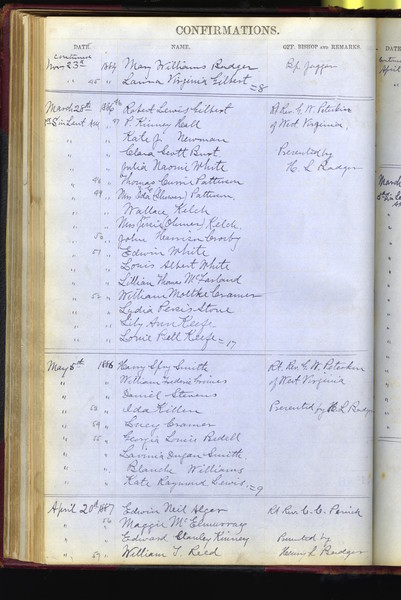 CONFIRMATIONS.
DATE. NAME. OFF. BISHOP AND REMARKS.
continued
Nov 23rd 1884 Mary Williams Badger Bp. Jaggar
" " 45 " Laura Virginia Gilbert = 8
March 28th 1886 Robert Lewis Gilbert Rt Rev. G. W. Peterkin
in Lent 47 P. Kinney Hall of West Virginia.
" " Kate J. Newman
" " Clara Scott Burt Presented by
" " Julia Naomi White H. L. Badger
" 48 " Thomas Currie Patterson
" 49 " Mrs Ida Patterson
" " Wallace Kelch
" " Mrs Kelch
" 50 " John Harrison Crosby
" 51 " Edwin White
" " Louis Albert White
" " Lillian Thomas McFarland
" 52 " William Moltke Cramer
" " Lydia Persis Stone
" " Lily Ann Keefe
" " Louis Bell Keefe = 17
May 5th 1886 Harry Smith Rt. Rev. G. W. Peterkin
" " William Frederic Grimes of West Virginia
" " Daniel Stevens
" 53 " Ida Killen Presented by H L Badger
" 54 " Lucy Cramer
" 55 " Georgia Louise Bedell
" " Lavinia Dugan Smith
" " Blanche Williams
" " Kate Raymond Lewis = 9
April 20th 1887 Edwin Neil Algar Rt Rev. C. C. Penick
" 56 " Maggie McElmurray
" " Edward Stanley Kinney Presented by
" 57 " William T. Reed Henry L Badger
DATE